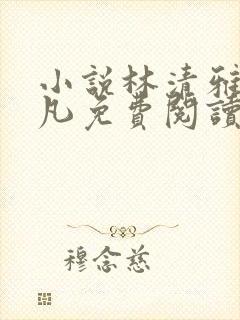 小說林清雅
凡免費閱讀
穆念慈